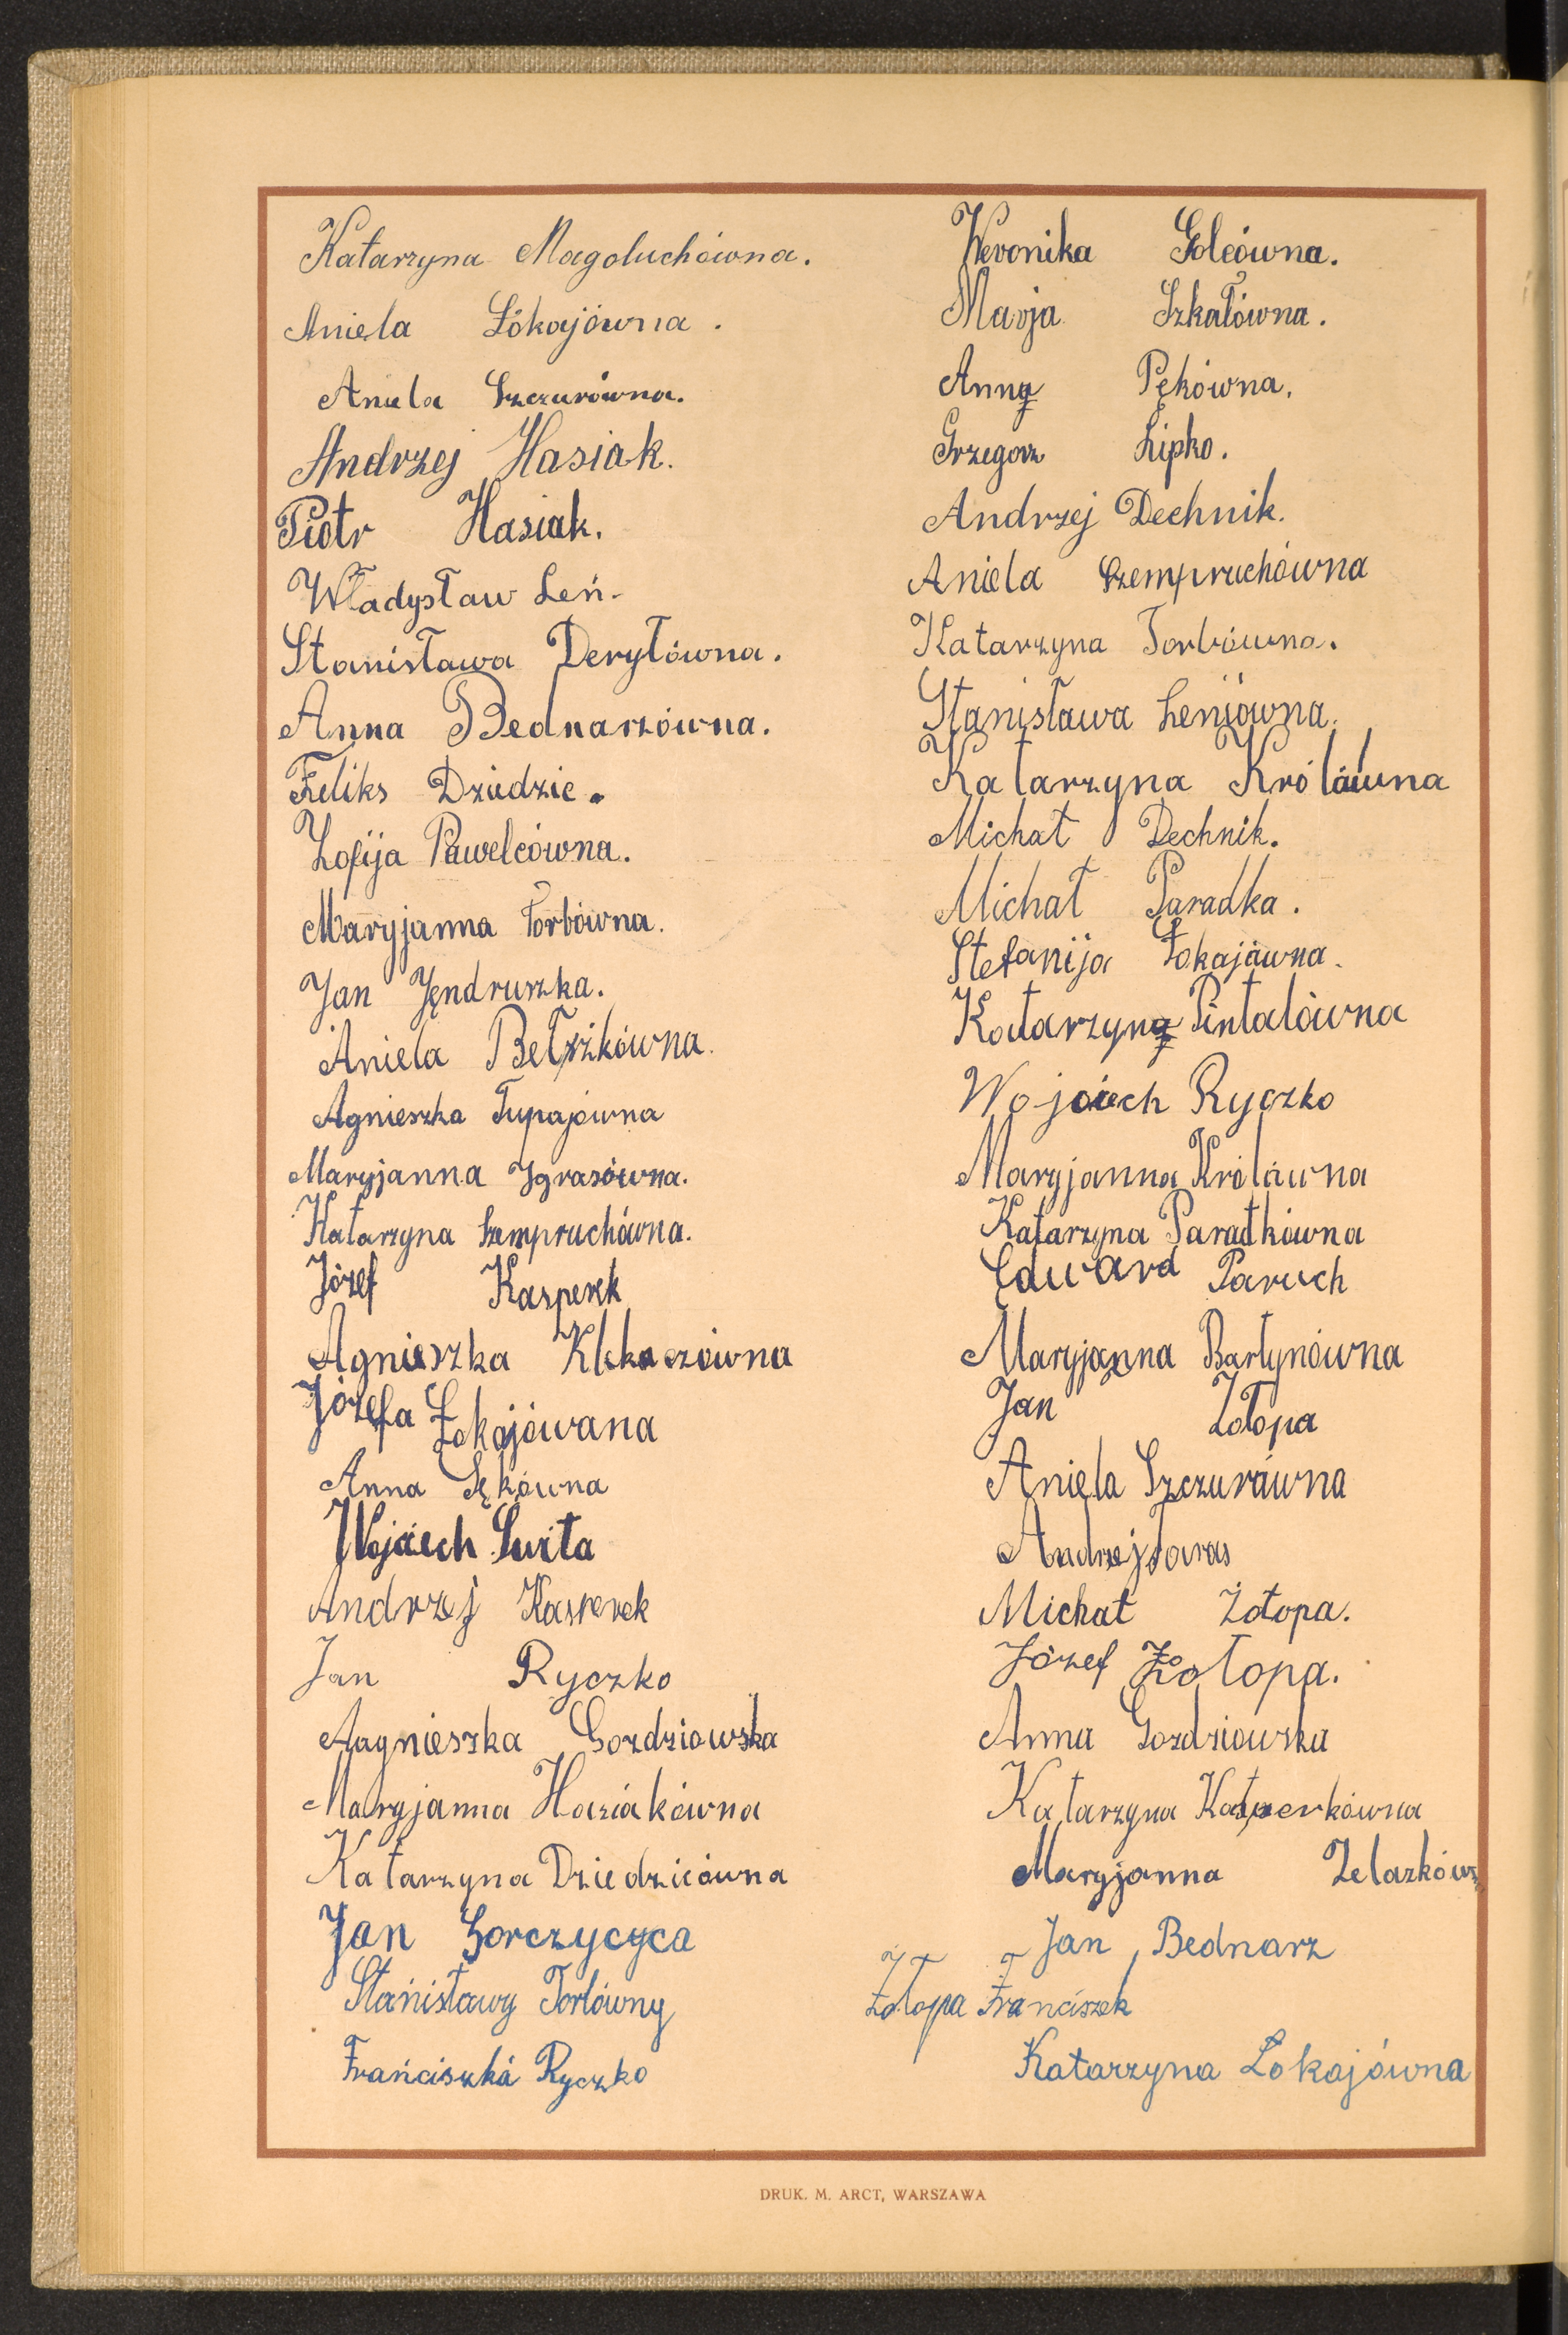 Katarzyna Magoluchówna.
Aniela Łókajówna.
Aniela Szczurówna.
Andrzej Hasiak.
Piotr Hasiak.
Władysław Leń.
Stanisława Deryłówna.
Anna Bednarzówna.
Feliks Dziedzic.
Zofija Pawelcówna.
Maryjanna Torbówna.
Jan Jędruszka.
Aniela Bełżkówna.
Agnieszka Tupajówna
Maryjanna Igrasówna.
Katarzyna Szempruchówna.
Józef Kasperek
Agnieszka
Józefa Łokajówana
Anna Sękówna
Wojciech Świta
Andrzej Kasperek
Jan Ryczko
Aagnieszka Gozdziowska
Maryjanna Hasiakówna
Katarzyna Dziedzicówna
Jan Gorczycyca
Stanisławy Torbówny
Franciszka Ryczko
Weronika Golcówna.
Marja Szkałówna.
Anna Pękówna.
Grzegorz Lipko.
Andrzej Dechnik.
Aniela Szempruchówna
Katarzyna Torbówna.
Stanisława Leniówna.
Katarzyna Królówna
Michał Dechnik.
Michał Paradka.
Stefanija Łokajówna.
Katarzyna Pintalówna
Wojciech Ryczko
Maryjanna Królówna
Katarzyna Paradkówna
Edward Paruch
Maryjanna Bartynówna
Jan Żołopa
Aniela Szczurówna
Andrzej Taras
Michał Żołopa.
Józef Żołopa.
Anna Gozdziowska
Katarzyna Kasperkówna
Maryjanna Żelazkówn
Jan Bednarz
Żołopa Franciszek
Katarzyna Łokajówna
DRUK. M. ARCT, WARSZAWA